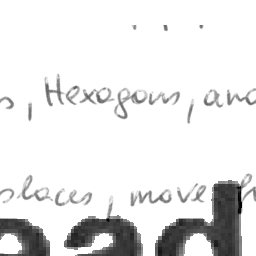 , Hexagons, and
places, move
ead